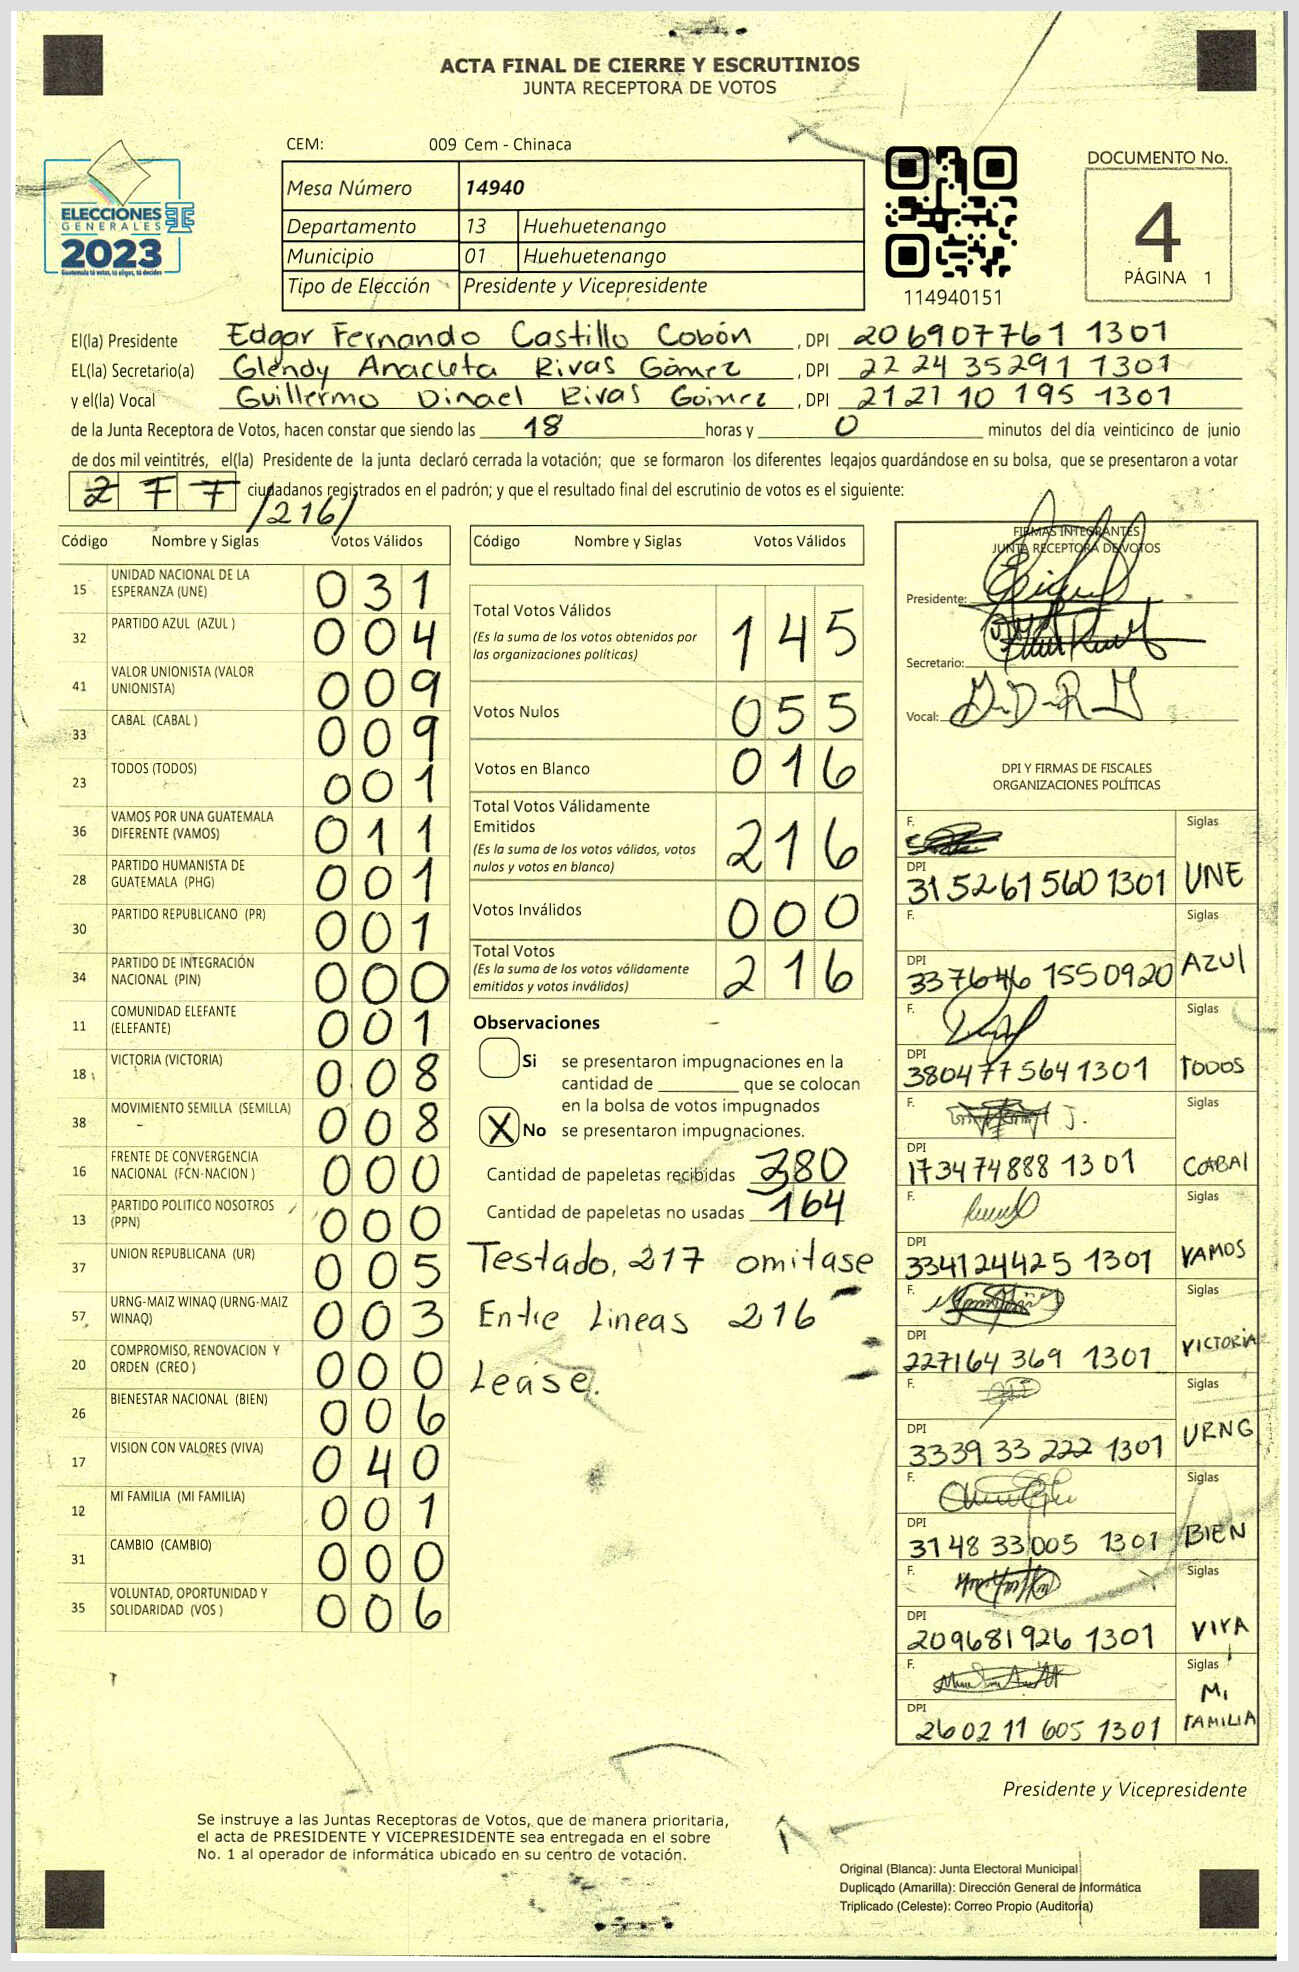 ACTA FINAL DE CIERRE Y ESCRUTINIOS
JUNTA RECEPTORA DE VOTOS
ELECCIONES
GENERALES
2023
Guatemala tú votas, tú eliges, tú decides
CEM: 009 Cem - Chinaca
Mesa Número 14940
Departamento 13 Huehuetenango
Municipio 01 Huehuetenango
Tipo de Elección Presidente y Vicepresidente
114940151
DOCUMENTO No.
4
PÁGINA 1
El(la) Presidente Edgar Fernando Castillo Cobón , DPI 206907761 1301
EL(la) Secretario(a) Glendy Anacleta Rivas Gómez , DPI 22 24 35291 1301
y el(la) Vocal Guillermo Dinael Rivas Gómez , DPI 21 21 10 195 1301
de la Junta Receptora de Votos, hacen constar que siendo las 18 horas y 0 minutos del día veinticinco de junio
de dos mil veintitrés, el(la) Presidente de la junta declaró cerrada la votación; que se formaron los diferentes legajos guardándose en su bolsa, que se presentaron a votar
ciudadanos registrados en el padrón; y que el resultado final del escrutinio de votos es el siguiente:
/216/
Código Nombre y Siglas Votos Válidos
15 UNIDAD NACIONAL DE LA ESPERANZA (UNE) 031
32 PARTIDO AZUL (AZUL ) 004
41 VALOR UNIONISTA (VALOR UNIONISTA) 009
33 CABAL (CABAL ) 009
23 TODOS (TODOS) 001
36 VAMOS POR UNA GUATEMALA DIFERENTE (VAMOS) 011
28 PARTIDO HUMANISTA DE GUATEMALA (PHG) 001
30 PARTIDO REPUBLICANO (PR) 001
34 PARTIDO DE INTEGRACIÓN NACIONAL (PIN) 000
11 COMUNIDAD ELEFANTE (ELEFANTE) 001
18 VICTORIA (VICTORIA) 008
38 MOVIMIENTO SEMILLA (SEMILLA) 008
16 FRENTE DE CONVERGENCIA NACIONAL (FCN-NACION ) 000
13 PARTIDO POLITICO NOSOTROS (PPN) 000
37 UNION REPUBLICANA (UR) 005
57 URNG-MAIZ WINAQ (URNG-MAIZ WINAQ) 003
20 COMPROMISO, RENOVACION Y ORDEN (CREO ) 000
26 BIENESTAR NACIONAL (BIEN) 006
17 VISION CON VALORES (VIVA) 040
12 MI FAMILIA (MI FAMILIA) 001
31 CAMBIO (CAMBIO) 000
35 VOLUNTAD, OPORTUNIDAD Y SOLIDARIDAD (VOS ) 006
Código Nombre y Siglas Votos Válidos
Total Votos Válidos 145
(Es la suma de los votos obtenidos por
las organizaciones políticas)
Votos Nulos 055
Votos en Blanco 016
Total Votos Válidamente
Emitidos 216
(Es la suma de los votos válidos, votos
nulos y votos en blanco)
Votos Inválidos 000
Total Votos 216
(Es la suma de los votos válidamente
emitidos y votos inválidos)
Observaciones
Si se presentaron impugnaciones en la
cantidad de ________ que se colocan
en la bolsa de votos impugnados
X No se presentaron impugnaciones.
Cantidad de papeletas recibidas 380
Cantidad de papeletas no usadas 164
Testado, 217 omitase
Entre Lineas 216
Léase.
FIRMAS INTEGRANTES
JUNTA RECEPTORA DE VOTOS
Presidente:
Secretario:
Vocal:
DPI Y FIRMAS DE FISCALES
ORGANIZACIONES POLÍTICAS
F. Siglas
DPI 31 5261 560 1301 UNE
F. Siglas
DPI 337646 155 0920 AZUl
F. Siglas
DPI 380477564 1301 TODOS
F. Siglas
DPI 173474888 1301 CABAl
F. Siglas
DPI 334124425 1301 VAMOS
F. Siglas
DPI 227164 369 1301 VICTORIA
F. Siglas
DPI 3339 33 222 1301 URNG
F. Siglas
DPI 3148 33005 1301 BIEN
F. Siglas
DPI 209681926 1301 VIVA
F. Siglas
DPI 2602 11 605 1301 Mi FAMILIA
Presidente y Vicepresidente
Se instruye a las Juntas Receptoras de Votos, que de manera prioritaria,
el acta de PRESIDENTE Y VICEPRESIDENTE sea entregada en el sobre
No. 1 al operador de informática ubicado en su centro de votación.
Original (Blanca): Junta Electoral Municipal
Duplicado (Amarilla): Dirección General de Informática
Triplicado (Celeste): Correo Propio (Auditoría)